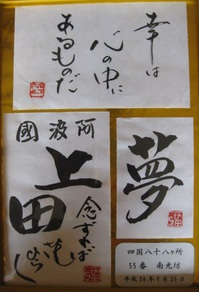 幸は
心の中に
あるものだ
阿波國
上田
念ずれば
花ひらく
夢
四国八十八ヶ所
55番 南光坊
平成24年9月25日